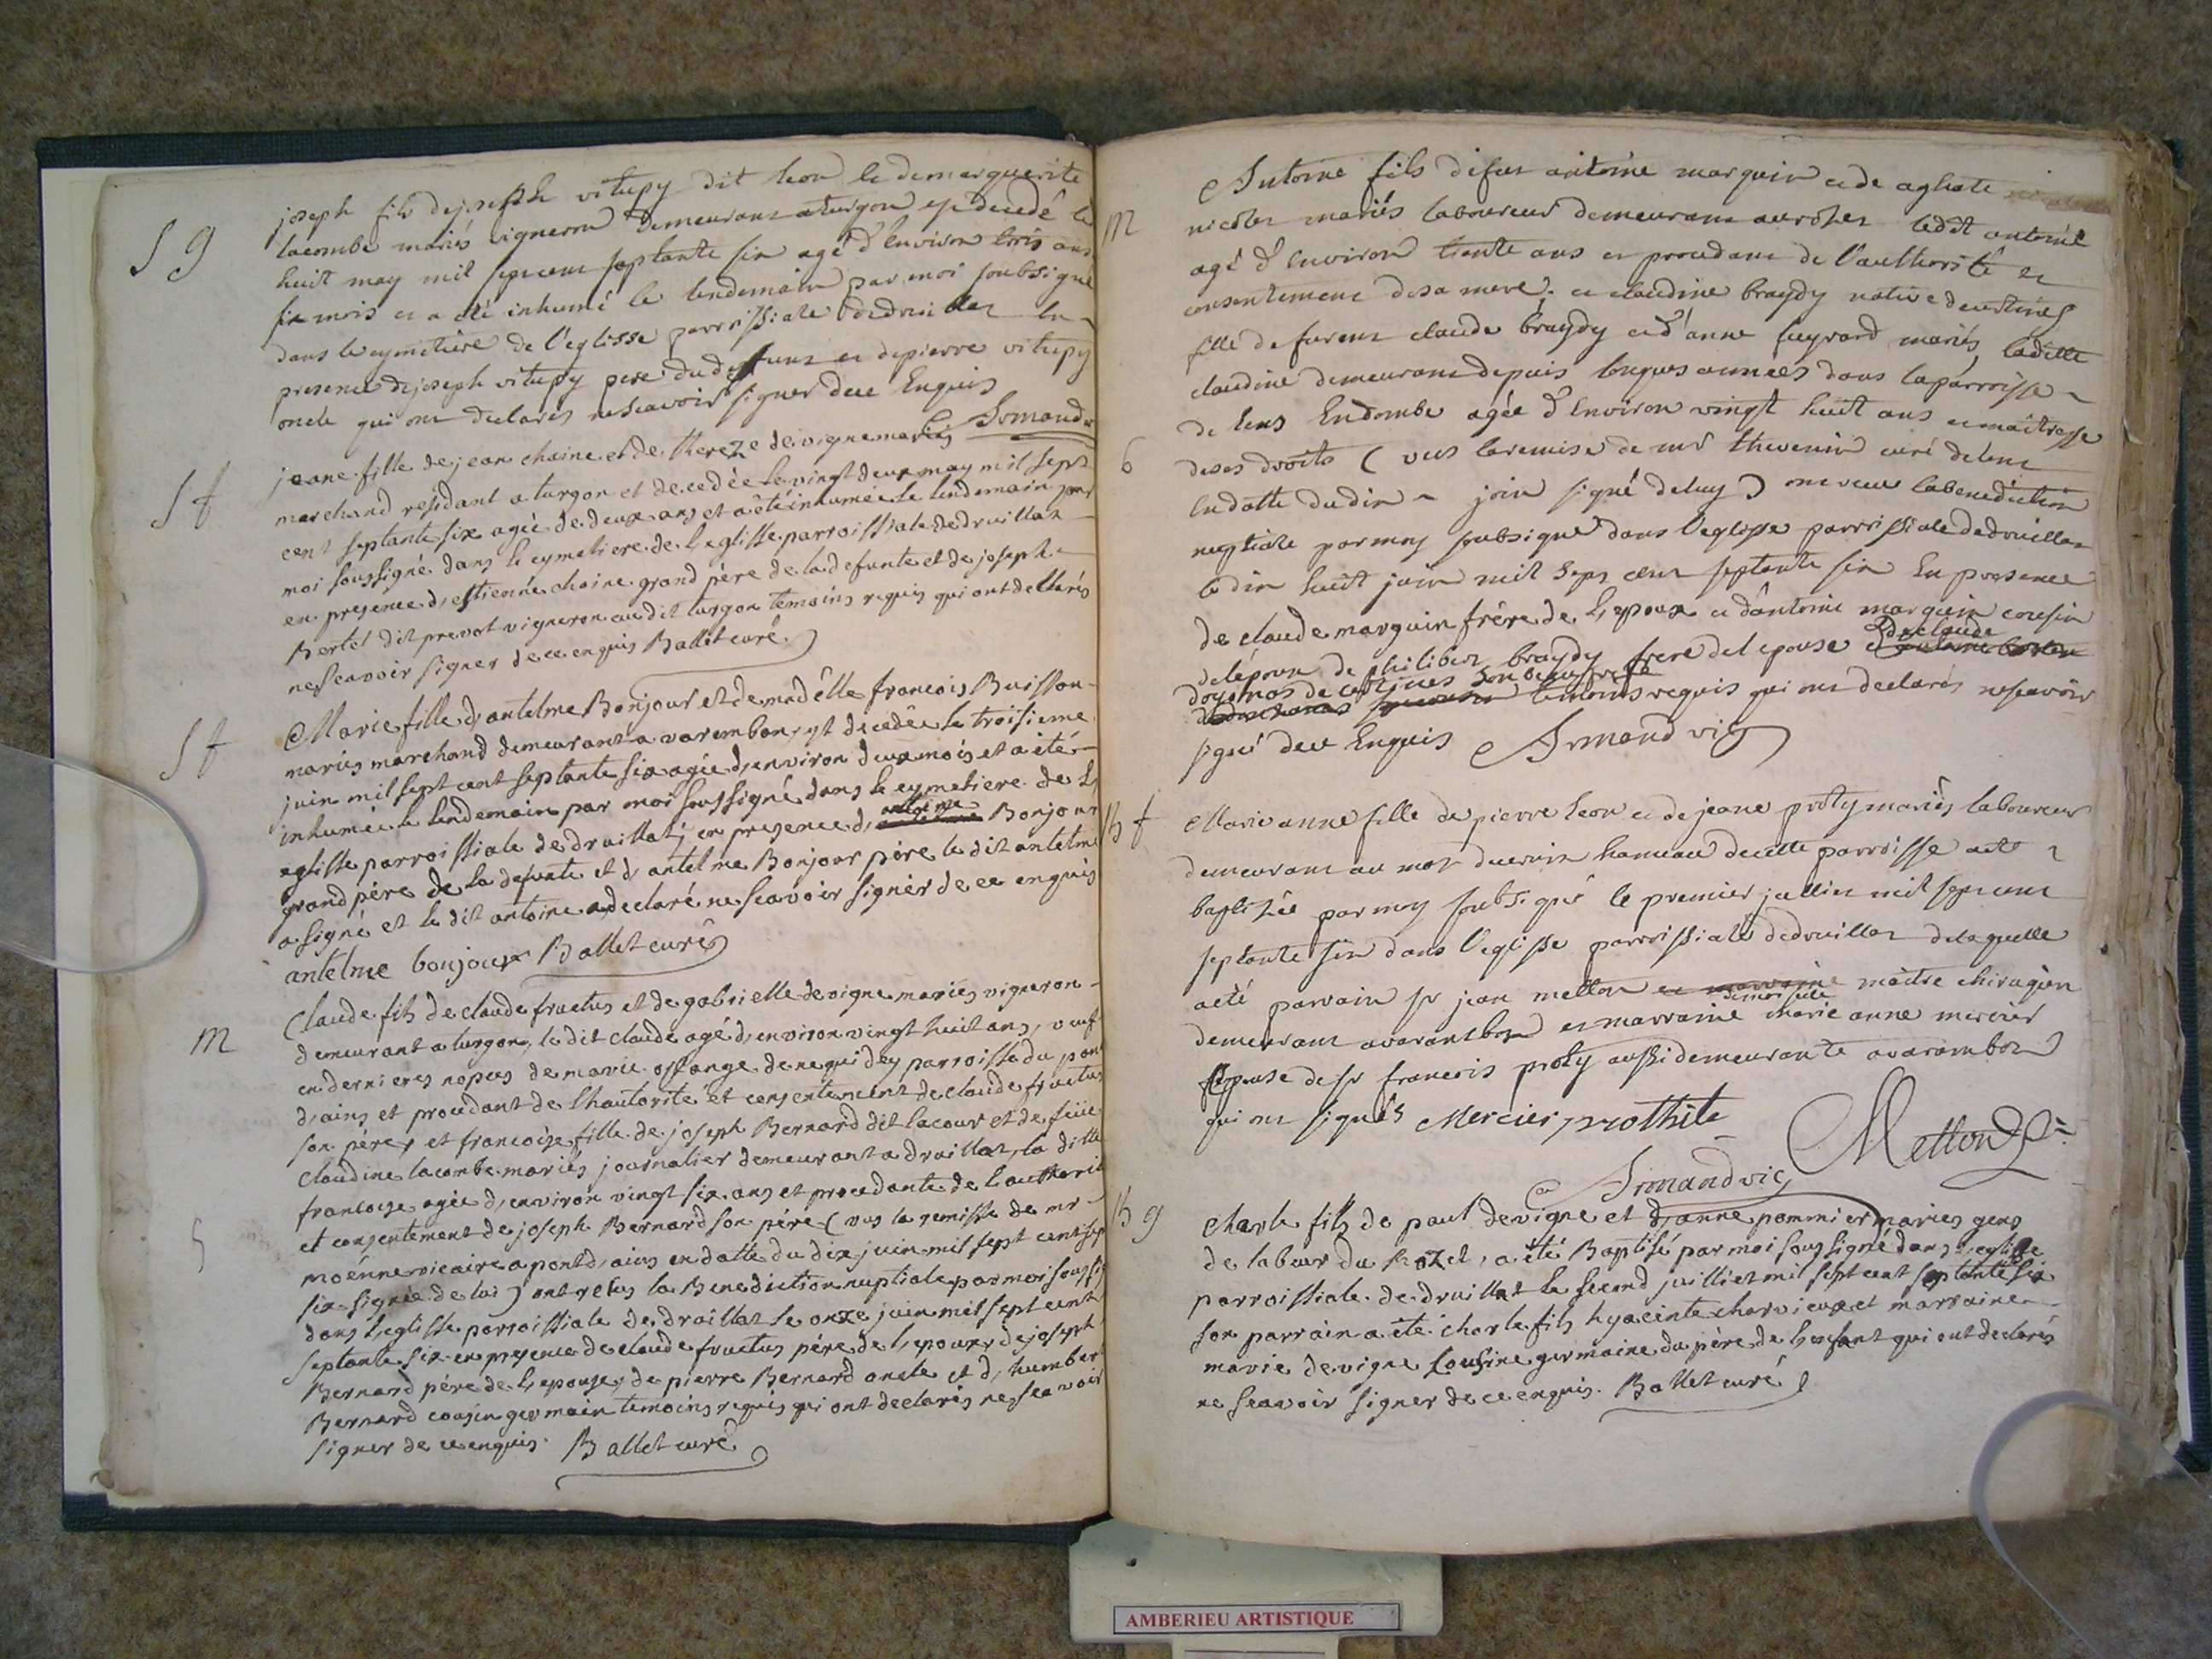 S g
joseph fils de joseph vitupy dit leon et de marguerite
lacombe mariés vigneron demeurans a turgon est decedé le
huit may mil sept cent septante six agé d'environ trois ans
six mois et a été inhumé le lendemain par moi soubsigné
dans le cymetiere de l'eglisse parroissiale de druillat en
presence de joseph vitupy pere du deffunt et de pierre vitupy
oncle qui ont declarés ne scavoir signer de ce enquis
Armand
S f
jeane fille de jean chaine et de thereze devigne mariés
marchand residant a turgon et decedèe le vingt deux may mil sept
cent septante six agée de deux ans et a été inhumée le lendemain par
moi soussigné dans le cymetiere de l,eglisse parroissiale de druillat
en presence d,estienne chaine grand pére de la defunte et de joseph
Bertet dit prevot vigneron audit turgon temoins requis qui ont declarés
ne scavoir signer de ce enquis Ballet curé
S f
Marie fille d,antelme Bonjour et de madêlle francois Buisson
mariés marchand demeurant a varembon, est decedée le troisieme
juin mil sept cent septante six agée d,environ deux mois et a été
inhumée le lendemain par moi soussigné dans le cymetiere de l,
eglisse parroissiale de druillat, en presence d, antoine Bonjour
grand pére de la defunte et d, antelme Bonjour père le dit antelme
a signé et le dit antoine a declaré ne scavoir signér de ce enquis
antelme bonjour Ballet curé
M
Claude fils de claude fructus et de gabrielle devigne mariés vigneron
demeurant a turgon, le dit claude agé d,environ vingt huit ans, veuf
en dernieres nopces de marie de parroisse du pont
d,ains et procedant de l'hautorité et consentement de claude fructus
son pére, et francoise fille de joseph Bernard dit lacour et de feüe
claudine lacombe mariés journalier demeurant a druillat, la ditte
francoise agée d,environ vingt six ans et procedante de l'authorité
et consentement de joseph Bernard son pére (vus la remisse de mr
moënne vicaire a pont d,ains en datte du dix juin mil sept cent sep
six signée de lui) ont reçus la Benediction nuptiale par moi soussi
dans l,eglisse parroissiale de druillat le onze juin mil sept cent
septante six en presence de claude fructus pére de l,epoux, de joseph
Bernard pére de l,epouse, de pierre Bernard oncle et d, humber
Bernard cousin germain temoins requis qui ont declarés ne scavoir
signer de ce enquis. Ballet curé
M
Antoine fils de feu antoine marguin et de agliate
nicolet mariés laboureur demeurans au rozet ledit antoine
agé d'environ trente ans et procedant de l'authorité et
consentement de sa mere, et claudine braydy native de certines
fille de furent claude braydy et d'anne mariés, laditte
claudine demeurant depuis longues années dans la parroisse
de lens en dombe agée d'environ vingt huit ans et maîtresse
6
de ses droits (vus la remise de mr thevenin curé de lent
en datte du dix juin signé de luy) ont reçu la benediction
nuptiale par moy soubsigné dans l'eglisse parroissiale de druillat
le dix huit juin mil sept cent septante six en presence
de claude marguin frére de l,epoux et d'antoine marguin cousin
de l'epoux de philibert braydy frere de l'epouse et de claude
de certines son beau frere
temoins requis qui ont declarés ne scavoir
signé de ce enquis Armand vic
B f
Marie anne fille de pierre leon et de jeane proty mariés laboureur
demeurans au hameau de cette parroisse a été
baptisée par moy soubsigné le premier jullier mil sept cent
septante six dans l'eglisse parroissiale de druillat de laquelle
a été parrain sr jean metton et marraine maître chirugien
demeurant a varambon et marraine demoiselle marie anne mercier
epouse de sr francois proty aussi demeurante a varambon
qui ont signés Mercier prothite
Metton
Armand vic
B g
charle fils de paul devigne et d,anne pommier mariés gens
de labeur du Rozet, a été Baptisé par moi soussigné dans l,eglisse
parroissiale de druillat le second juillièt mil sept cent septante six
son parrain a été charle fils hyacinte charvieux et marraine
marie devigne cousine germaine du pére de l,enfant qui ont declarés
ne scavoir signer de ce enquis. Ballet curé
AMBERIEU ARTISTIQUE